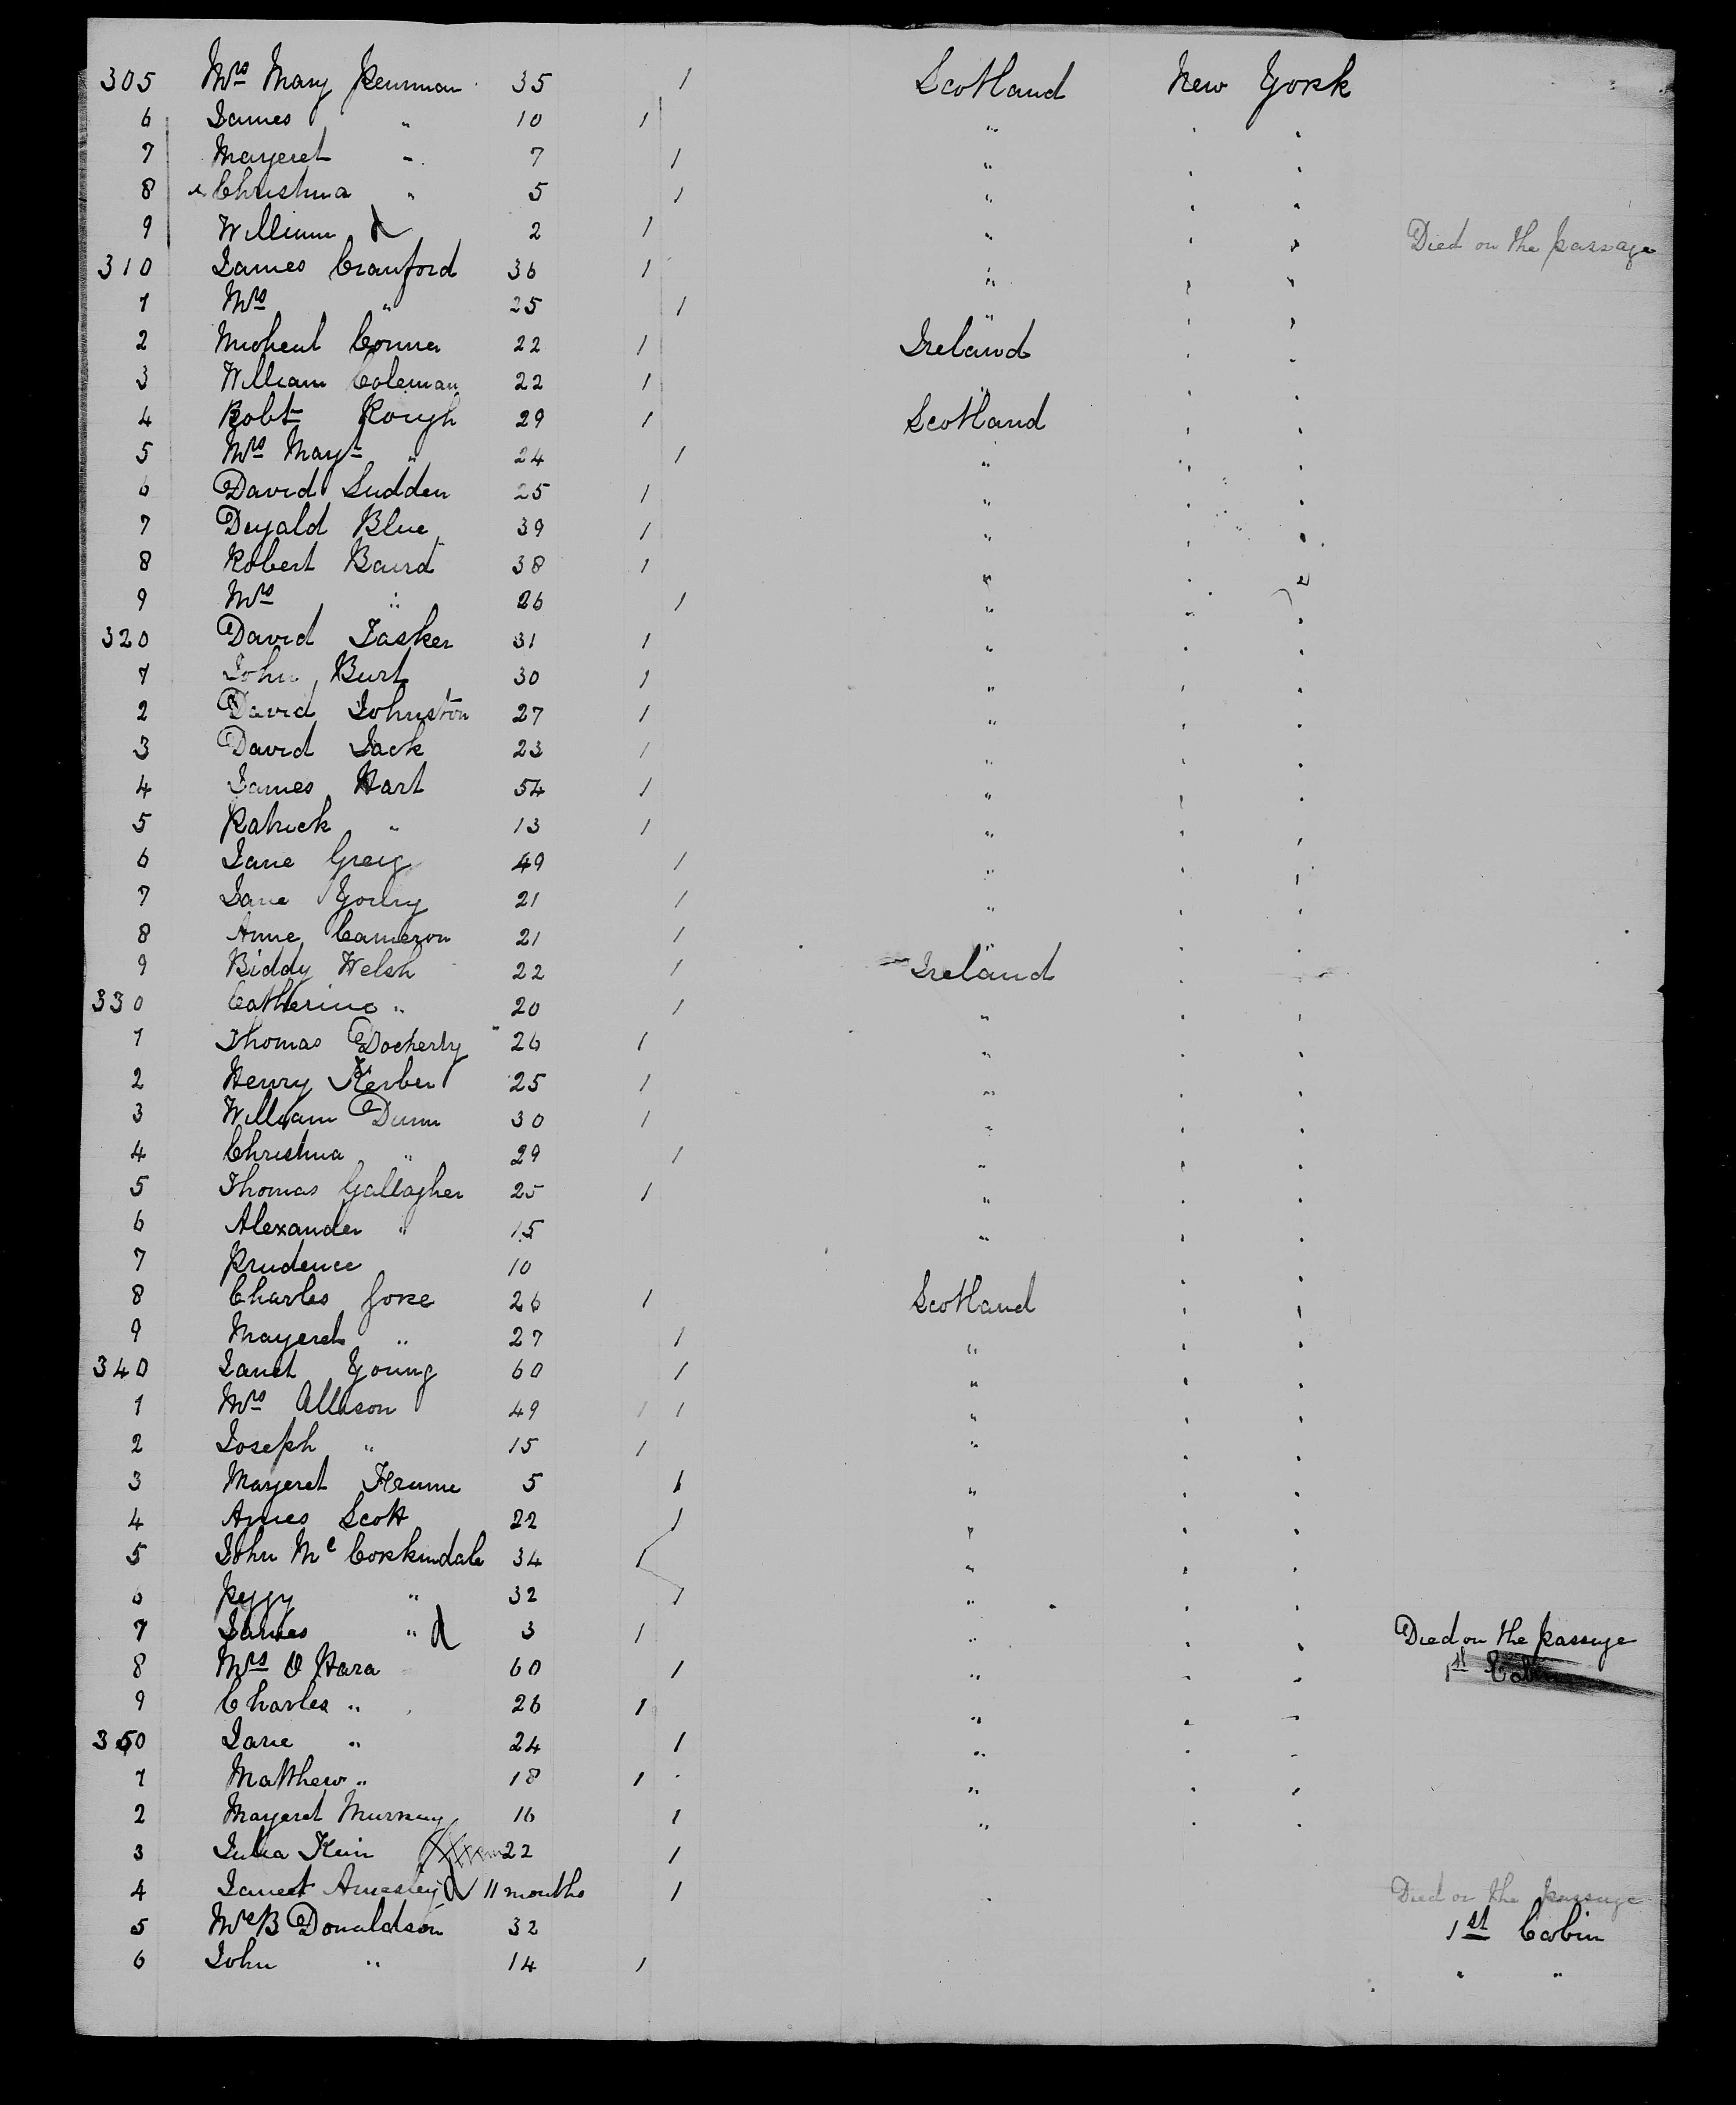 305 Mrs Mary Penman 35 1 Scotland New York
6 James " 10 1 " " "
7 Margeret " 7 1 " " "
8 Christina " 5 1 " " "
9 William d 2 1 " " " Died on the passage
310 James Crawford 36 1 " " "
1 Mrs " 25 1 " " "
2 Micheal Conner 22 1 Ireland " "
3 William Coleman 22 1 " " "
4 Robt Rough 29 1 Scotland " "
5 Mrs Mart " 24 1 " " "
6 David Sudden 25 1 " " "
7 Dugald Blue 39 1 " " "
8 Robert Baird 38 1 " " "
9 Mrs " 26 1 " " "
320 David Tasker 31 1 " " "
1 John Burt 30 1 " " "
2 David Johnston 27 1 " " "
3 David Jack 23 1 " " "
4 James Hart 54 1 " " "
5 Patrick " 13 1 " " "
6 Jane Greig 49 1 " " "
7 Jane Young 21 1 " " "
8 Anne Cameron 21 1 " " "
9 Biddy Welsh 22 1 Ireland " "
330 Catherine " 20 1 " " "
1 Thomas Docherty 26 1 " " "
2 Henry Kerber 25 1 " " "
3 William Dunn 30 1 " " "
4 Christina " 29 1 " " "
5 Thomas Gallagher 25 1 " " "
6 Alexander " 15 " " "
7 Prudence 10 " "
8 Charles 26 1 Scotland " "
9 Margeret " 27 1 " " "
340 Janet Young 60 1 " " "
1 Mrs Allison 49 1 1 " " "
2 Joseph " 15 1 " " "
3 Margeret 5 1 " " "
4 Agnes Scott 22 1 " " "
5 John Mc Corkindale 34 1 " " "
6 Peggy " 32 1 " " "
7 James " d 3 1 " " " Died on the passage
8 Mrs O Hara 60 1 " " " 1st Cabin
9 Charles " 26 1 " " "
350 Jane " 24 1 " " "
1 Matthew " 18 1 " " "
2 Margeret Murray 16 1 " " "
3 Julia Kein 22 1
4 Janet d 11 months 1 " Died on the passage
5 B Donaldson 32 1st Cabin
6 John " 14 1 " "